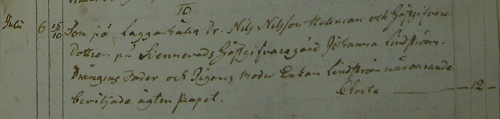 10
Juli 6 15/10 Son på Laggarhälla Dr. Nils Nilsson Hallman och Gästgifvare
Dottren på Svennevads Gästgifvaregård Johanna Lindström.
Drängens Fader och Pigans moder Enkan Lindström närvarande
beviljade ägtenskapet. 12